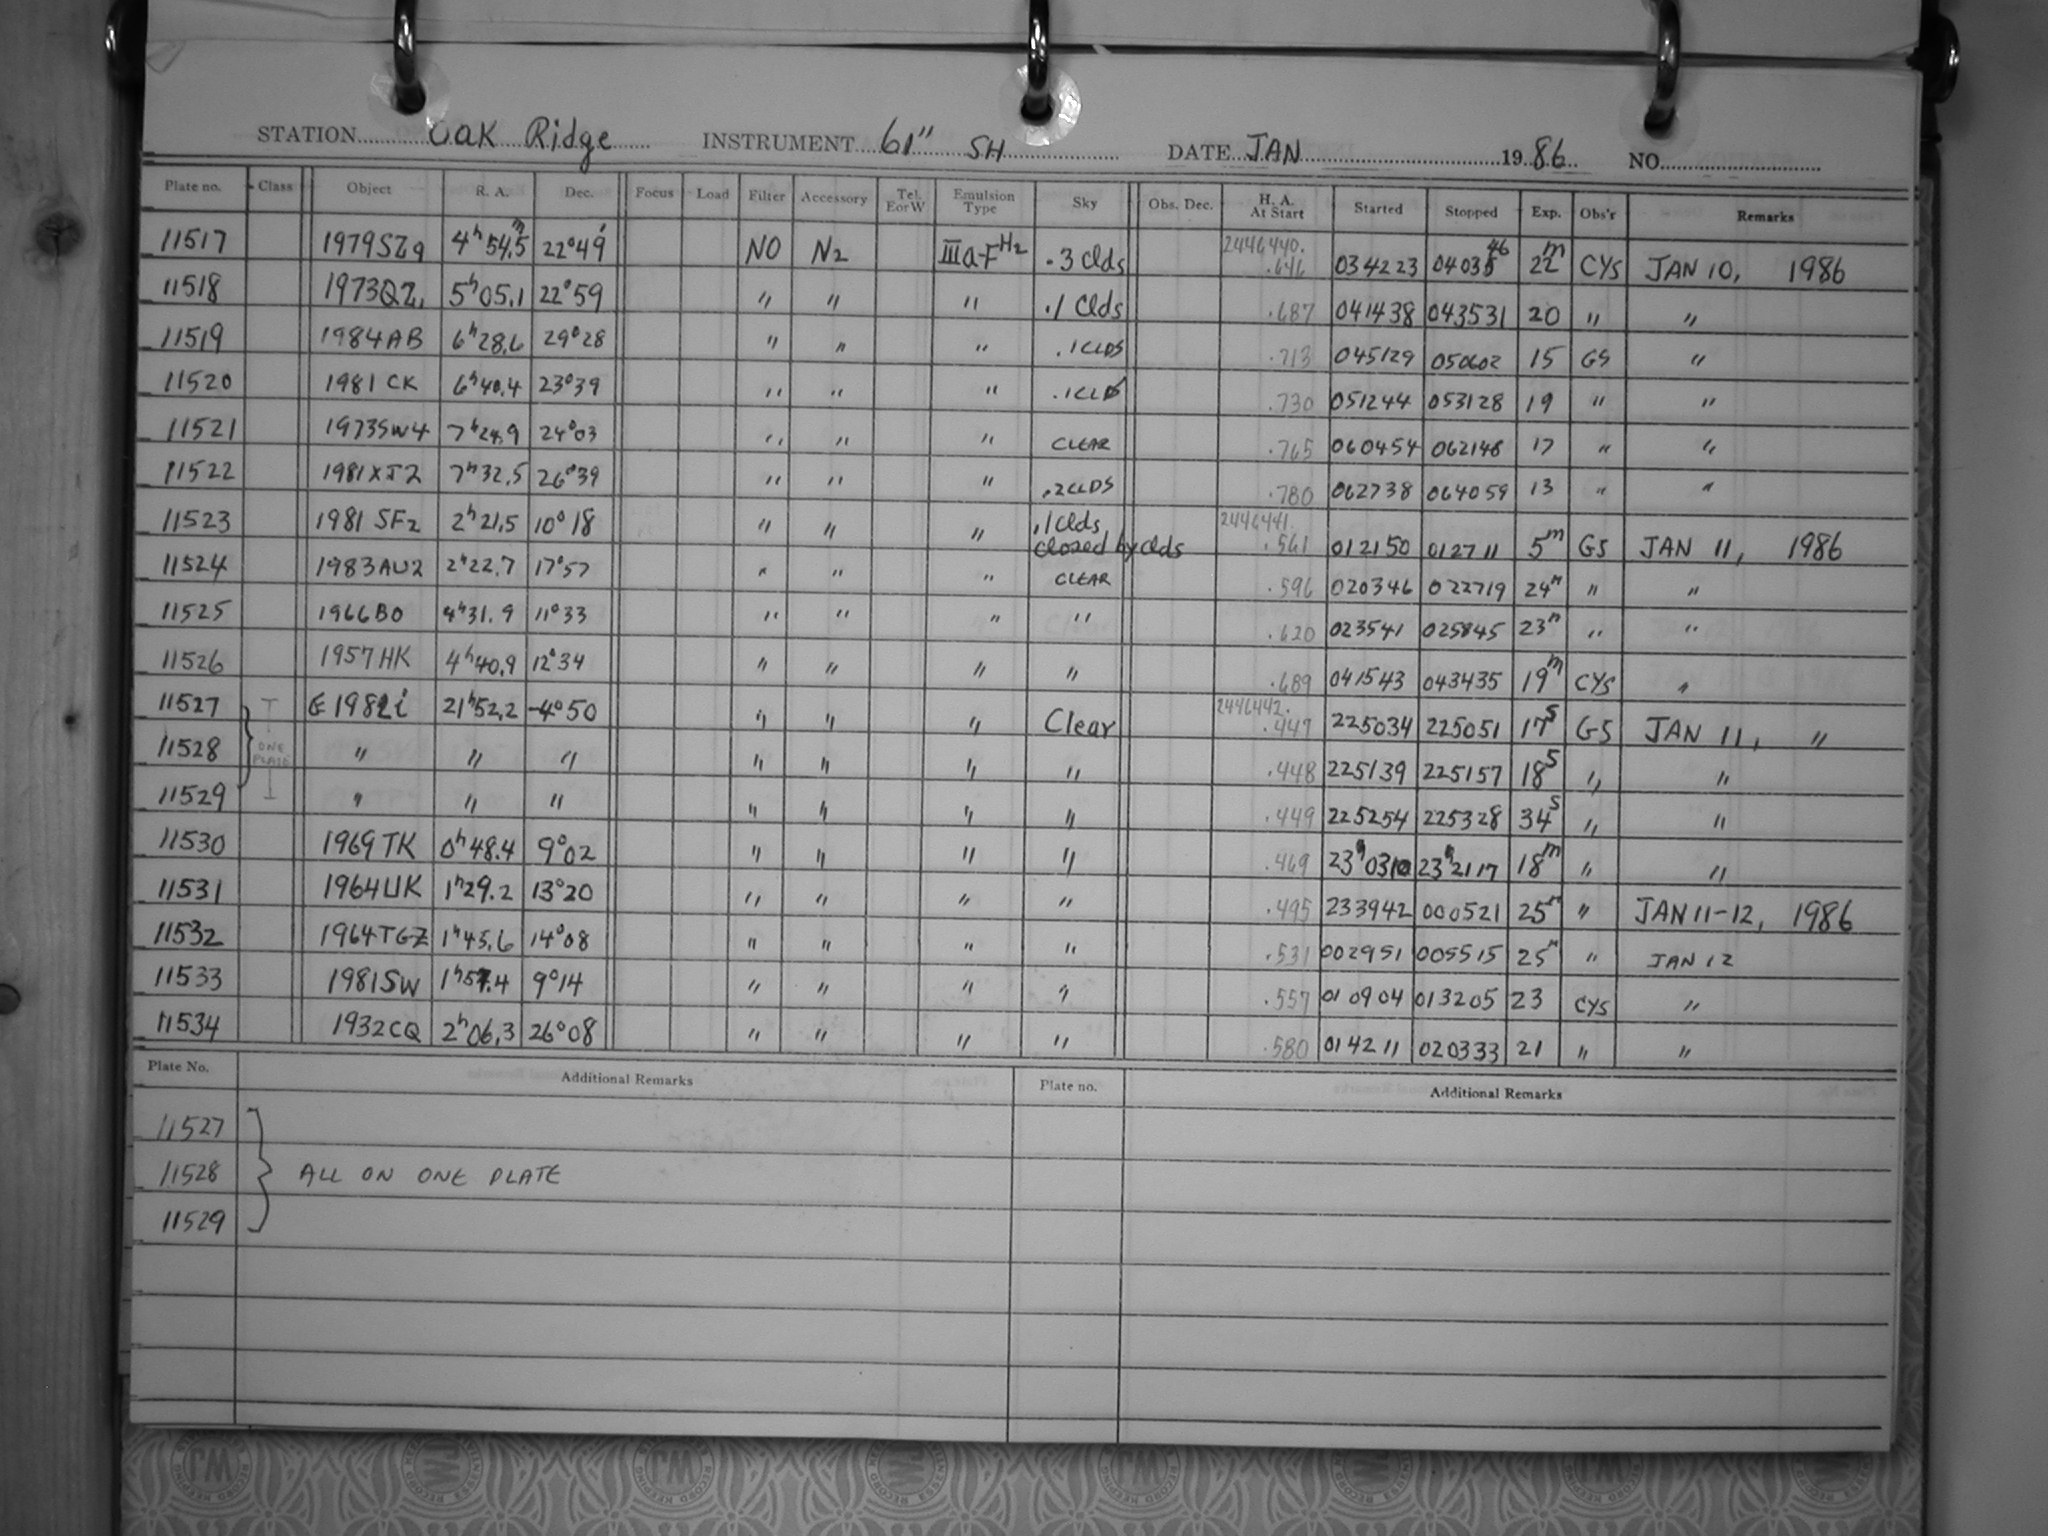 STATION Oak Ridge INSTRUMENT 61" SH DATE JAN 1986 NO.
Plate no. Class Object R. A. Dec. Focus Load Filter Accessory Tel. E or W Emulsion Type Sky Obs. Dec. H. A. At Start Started Stopped Exp. Obs'r Remarks
11517 1979SZ9 4h54.5m 22°49' NO N2 IIIa-F H2 .3 clds 2446440. .646 034223 0403 46 22m CYS JAN 10, 1986
11518 1973QZ1 5h05.1 22°59 " " " .1 clds .687 041438 043531 20 " "
11519 1984AB 6h28.6 29°28 " " " .1CLDS .713 045129 050602 15 GS "
11520 1981 CK 6h40.4 23°39 " " " .1CLDS .730 051244 053128 19 " "
11521 1973SW4 7h24.9 24°03 " " " CLEAR .765 060454 062148 17 " "
11522 1981XJ2 7h32.5 26°39 " " " .2CLDS .780 062738 064059 13 " "
11523 1981 SF2 2h21.5 10°18 " " " .1 clds closed by clds 2446441. .561 012150 012711 5m GS JAN 11, 1986
11524 1983AU2 2h22.7 17°57 " " " CLEAR .596 020346 022719 24m " "
11525 1966BO 4h31.9 11°33 " " " " .620 023541 025845 23m " "
11526 1957HK 4h40.9 12°34 " " " " .689 041543 043435 19m CYS "
11527 1982i 21h52.2 -4°50 " " " Clear 2446442. .447 225034 225051 17s GS JAN 11, "
11528 ONE PLATE " " " " " " " .448 225139 225157 18s " "
11529 " " " " " " " .449 225254 225328 34s " "
11530 1969TK 0h48.4 9°02 " " " " .469 23h0310 23h2117 18m " "
11531 1964UK 1h29.2 13°20 " " " " .495 233942 000521 25m " JAN 11-12, 1986
11532 1964TGZ 1h45.6 14°08 " " " " .531 002951 005515 25m " JAN 12
11533 1981SW 1h57.4 9°14 " " " " .557 010904 013205 23 CYS "
11534 1932CQ 2h06.3 26°08 " " " " .580 014211 020333 21 " "
Plate No. Additional Remarks Plate no. Additional Remarks
11527
11528 ALL ON ONE PLATE
11529